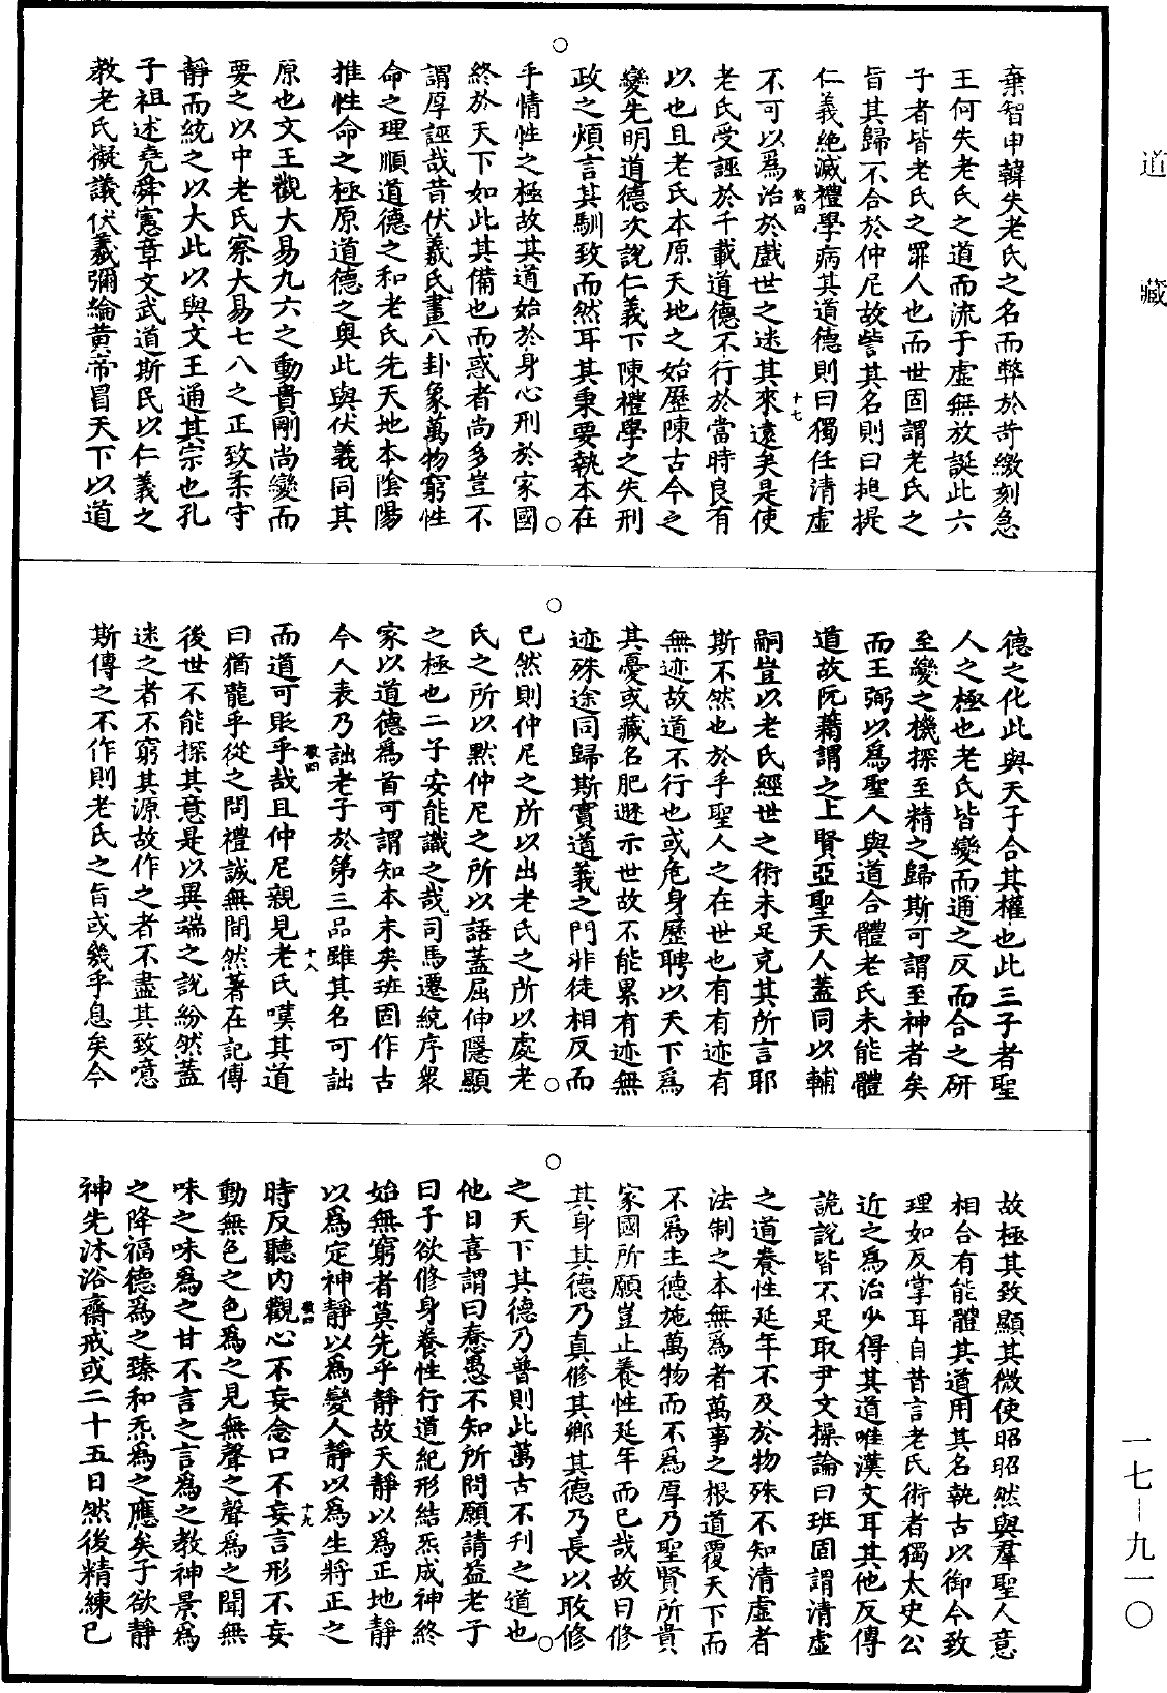 道藏
棄智申韓失老氏之名而弊於苛繳刻急
王何失老氏之道而流于虛無放誕此六
子者皆老氏之罪人也而世因謂老氏之
旨其歸不合於仲尼故訾其名則曰搥提
仁義絕滅禮學病其道德則曰獨任清虛
敬四 十七
不可以爲治於戲世之迷其來遠矣是使
老氏受誣於千載道德不行於當時良有
以也且老氏本原天地之始歷陳古今之
變先明道德次說仁義下陳禮學之失刑
政之煩言其馴致而然耳其秉要執本在
乎情性之極故其道始於身心刑於家國
終於天下如此其備也而惑者尚多豈不
謂厚誣哉昔伏羲氏畫八卦象萬物窮性
命之理順道德之和老氏先天地本陰陽
推性命之極原道德之奧此與伏羲同其
原也文王觀大易九六之動貴剛尚變而
要之以中老氏察大易七八之正致柔守
靜而統之以大此以與文王通其宗也孔
子祖述堯舜憲章文武道斯民以仁義之
教老氏擬議伏羲彌綸黃帝冒天下以道
德之化此與天子合其權也此三子者聖
人之極也老氏皆變而通之反而合之研
至變之機探至精之歸斯可謂至神者矣
而王弼以爲聖人與道合體老氏未能體
道故阮藉謂之上賢亞聖天人蓋同以輔
嗣豈以老氏經世之術未足充其所言耶
斯不然也於乎聖人之在世也有有迹有
無迹故道不行也或危身歷聘以天下爲
其憂或藏名肥遯示世故不能累有迹無
迹殊途同歸斯實道義之門非徒相反而
已然則仲尼之所以出老氏之所以處老
氏之所以默仲尼之所以語蓋屈伸隱顯
之極也二子安能識之哉司馬遷統序衆
家以道德爲首可謂知本末矣班固作古
今人表乃詘老子於第三品雖其名可詘
敬四 十八
而道可貶乎哉且仲尼親見老氏嘆其道
曰猶龍乎從之問禮誠無間然著在記傳
後世不能探其意是以異端之說紛然蓋
迷之者不窮其源故作之者不盡其致噫
斯傳之不作則老氏之旨或幾乎息矣今
故極其致顯其微使昭昭然與羣聖人意
相合有能體其道用其名執古以御今致
理如反掌耳自昔言老氏術者獨太史公
近之爲治少得其道唯漢文耳其他反傳
詭說皆不足取尹文操論曰班固謂清虛
之道養性延年不及於物殊不知清虛者
法制之本無爲者萬事之根道覆天下而
不爲主德施萬物而不爲厚乃聖賢所貴
家國所願豈止養性延年而已哉故曰修
其身其德乃真修其鄉其德乃長以敢修
之天下其德乃普則此萬古不刋之道也
他日喜謂曰憃愚不知所問願請益老子
曰子欲修身養性行道紀形結炁成神終
始無窮者莫先乎靜故天靜以爲正地靜
以爲定神靜以爲變人靜以爲生將正之
敬四 十九
時反聽內觀心不妄念口不妄言形不妄
動無色之色爲之見無聲之聲爲之聞無
味之味爲之甘不言之言爲之教神景爲
之降福德爲之臻和炁爲之應矣子欲靜
神先沐浴齋戒或二十五日然後精練已
一七—九一〇